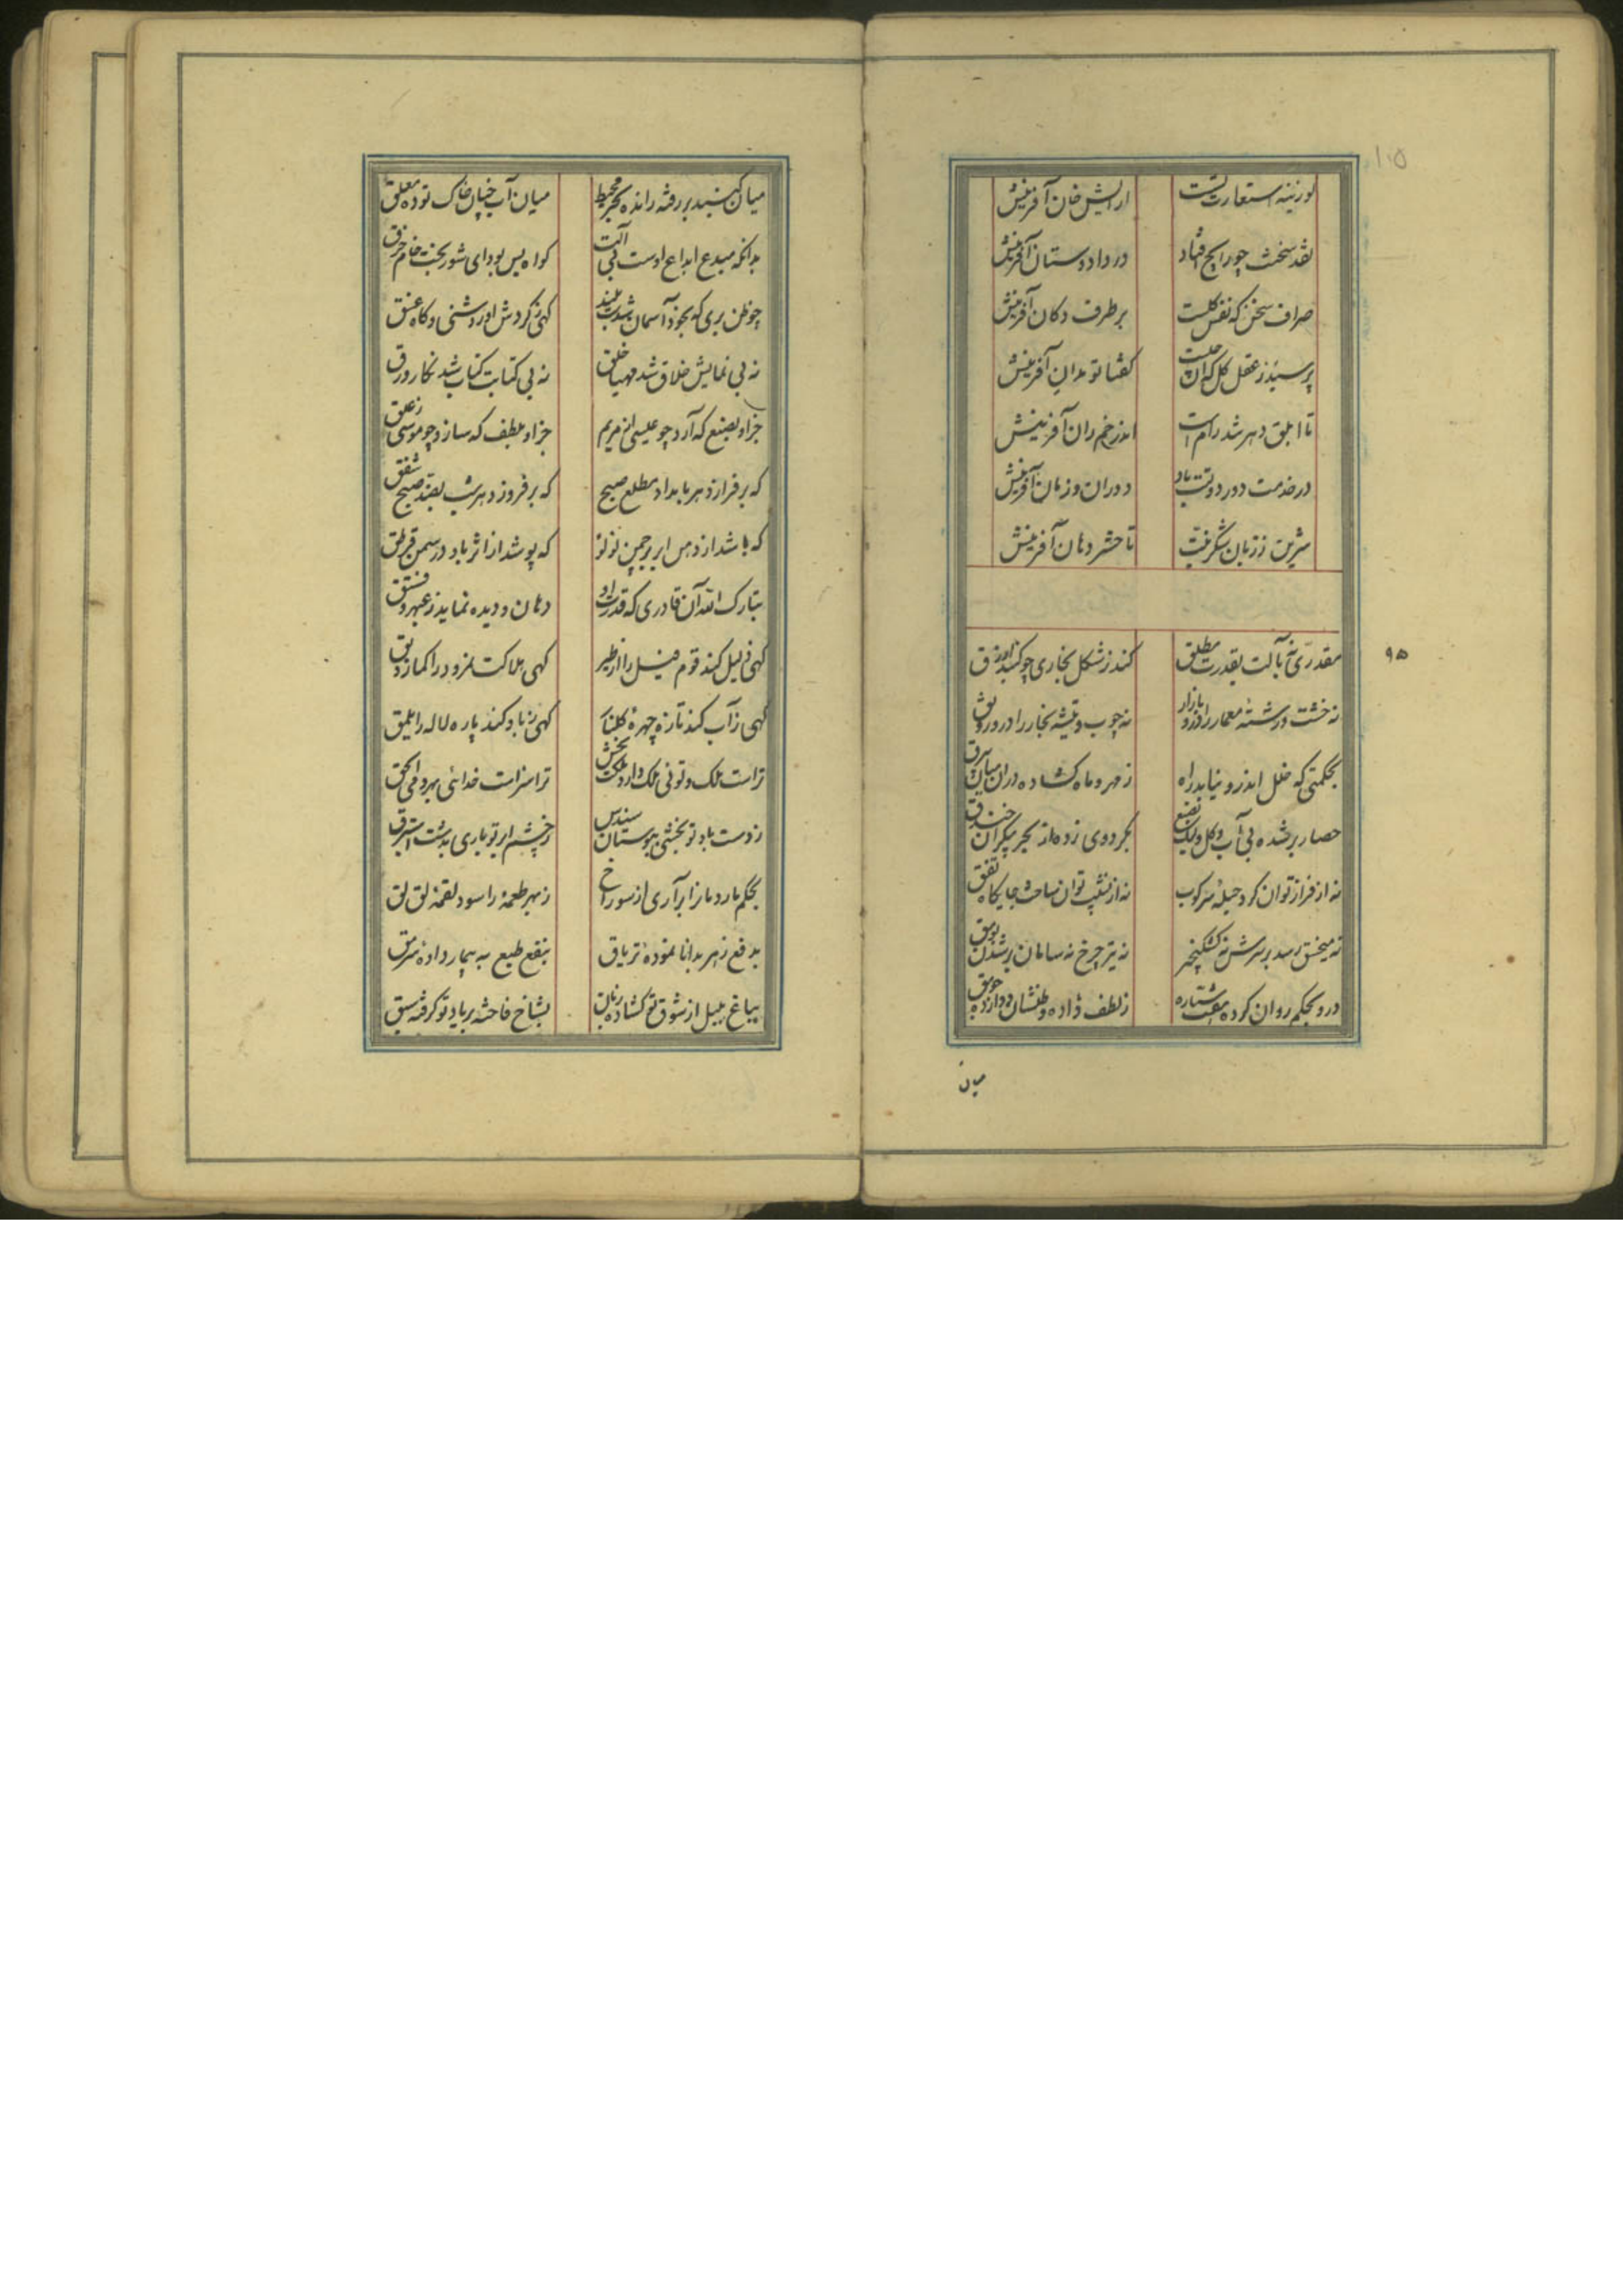 ۱۰۵
لوزینه استعارتت
آرایش خان آفرینش
نقد سخنت چو رایج افتاد
در داد و ستان آفرینش
صراف سخن که نفس کلست
بر طرف دکان آفرینش
پرسید ز عقل کل که آن چیست
گفتا تو بدان آفرینش
تا ابلق دهر شد رام است
اندر خم ران آفرینش
در خدمت دور دولتت باد
دوران و زمان آفرینش
شیرین ز زبان شکرینت
تا حشر دهان آفرینش
مقدری نه بآلت بقدرت مطلق
کند ز شکل بخاری چو گنبد ازرق
۹۵
نه خشت و رشته معمار را درو بازار
نه چوب و تیشه نجار را درو رونق
بحکمتی که خلل اندرو نیابد راه
ز مهر و ماه گشاده دران میان بیرق
حصار بر شده بی آب و گل
بگردوی زده از بحر بیکران خندق
نه از فراز توان کرد حیله سرکوب
نه از نشیب توان ساخت جایگاه نفق
نه میخش رسد بر سرش نه کشکنجیر
نه تیر چرخ نه سامان بر شدن بومق
درو بحکم روان کرده هفت ستاره
ز لطف داده وطنشان دوازده جوسق
میان
میان گنبد بر رفته رانده بحر محیط
میان آب چنان خاک توده معلق
بدانکه مبدع ابداع اوست بی آلت
گواه بس بود ای شوربخت خام خرق
چو ظن بری که بخود آسمان شدست بلند
گهی ز گردش او روشنی و گاه غسق
نه بی نمایش خلاق شد مهیا خلق
نه بی کتابت کتاب شد نگار ورق
جز او بصنع که آرد چو عیسی از مریم
جز او بلطف که سازد چو موسی ز علق
که بر فرازد هر بامداد مطلع صبح
که بر فروزد هر شب بضد صبح شفق
که باشد از دهن ابر بر چمن لؤلؤ
که پوشد از اثر باد در سمن قرطق
تبارک الله آن قادری که قدرت او
دهان و دیده نماید ز عبهر و فستق
گهی ذلیل کند قوم فیل را از طیر
گهی هلاکت نمرود را گمارد بق
گهی ز آب کند تازه چهره گلنار
گهی ز باد کند پاره لاله را یلمق
تراست ملک و تویی ملک دار و ملکت بخش
ترا سزاست خدائی بهر دو فی الحق
ز دست باد تو بخشی ببوستان سندس
ز چشم ابر تو باری بدشت استبرق
بحکم مار دمان را برآری از سوراخ
ز بهر طعمه را سود لقمه لق لق
بدفع زهر بدانا نموده تریاق
بنفع طبع به بیمار داده سرمق
بباغ بلبل از شوق تو گشاده زبان
بشاخ فاخته بر یاد تو گرفته سبق